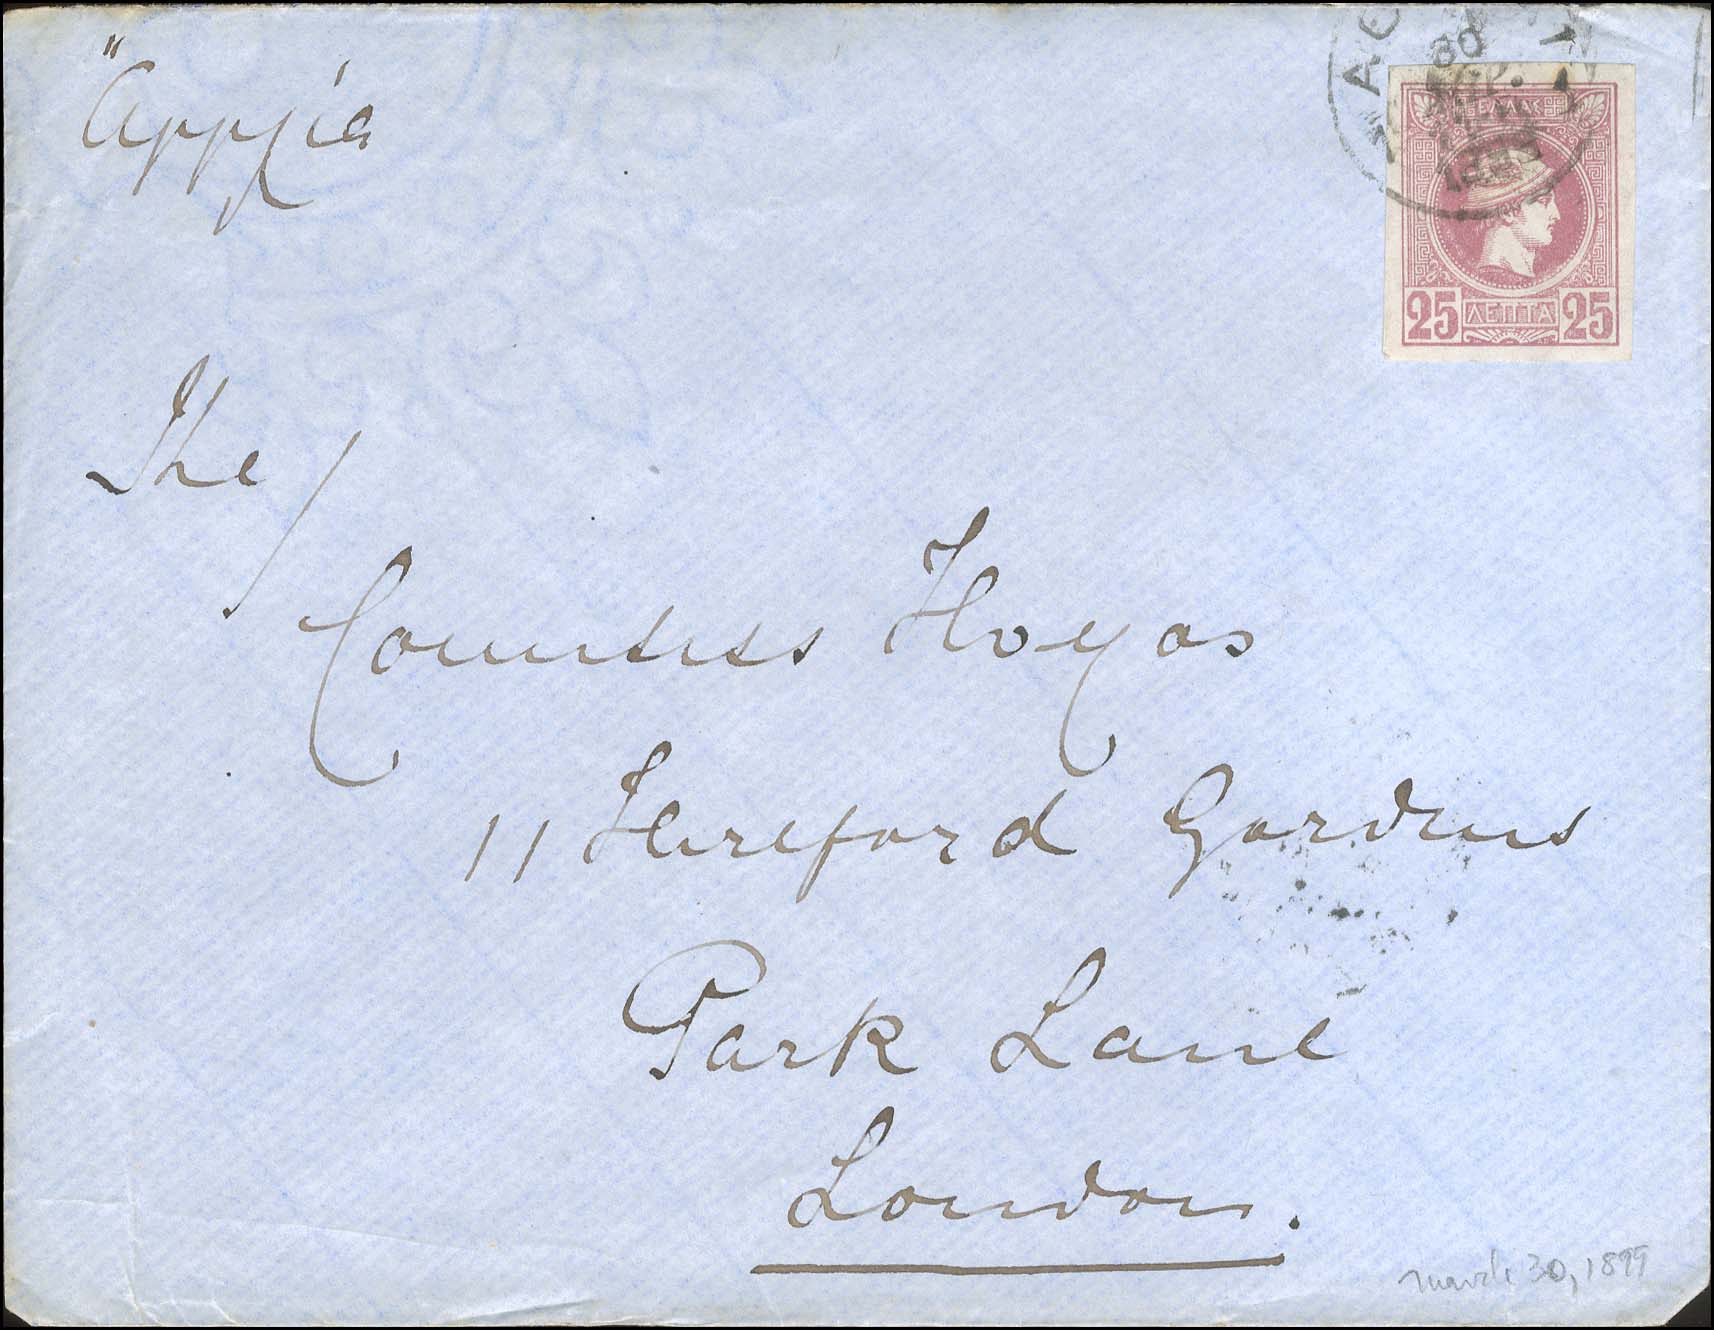 "Αγγλία
The
Countess Hoyos
11 Hereford Gardens
Park Lane
London.
ΕΛΛΑΣ
25 ΛΕΠΤΑ 25
march 30, 1899